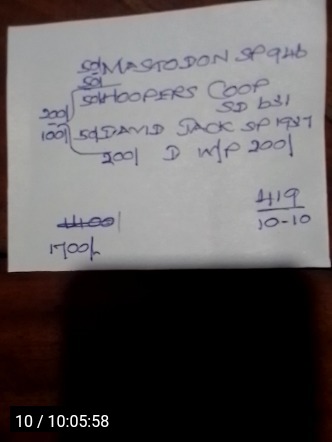 50/ MASTODON SP 946
50/
50/ HOOPERS COOP
SD 631
200/
100/ 50/ DAVID JACK SP 1937
200/ D W/P 200/
1100/
1700/-
419
10-10
10 / 10:05:58